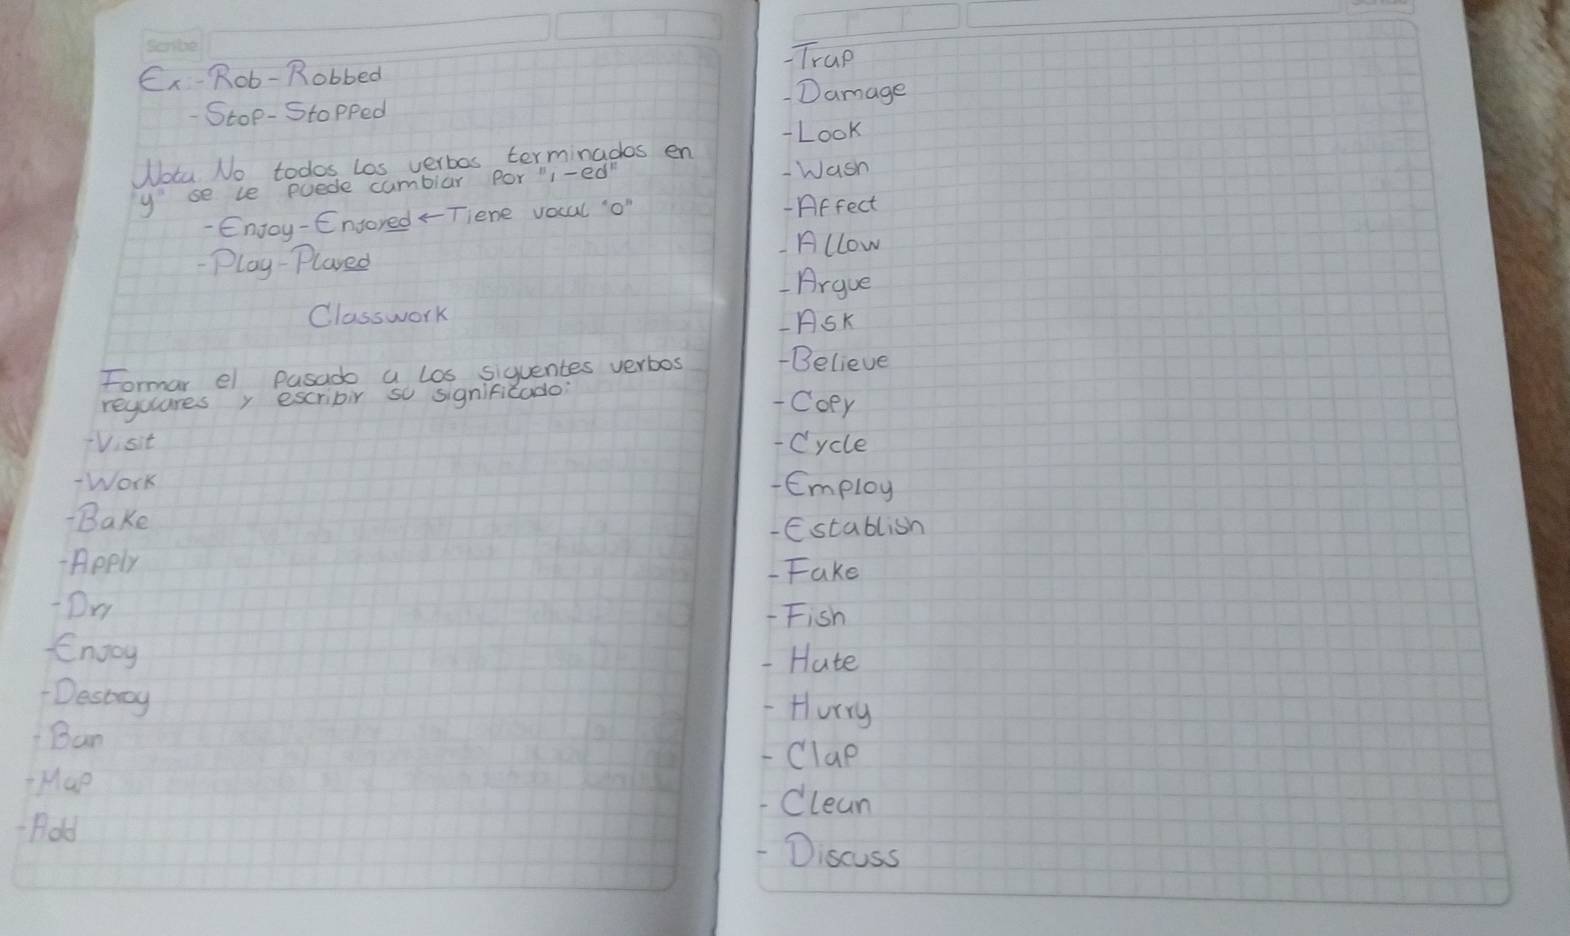 Scribe
Ex:-Rob-Robbed
-Stop-Stopped
Nota No todos los verbos terminados en
"y" se le puede cambiar por "i-ed"
-Enjoy-Enjoyed ← Tiene vocal "o"
-Play-Played
Classwork
Formar el pasado a los siguentes verbos
regulares y escribir su significado:
-Visit
-Work
-Bake
-Apply
-Dry
-Enjoy
-Destroy
-Ban
-Map
-Add
-Trap
-Damage
-Look
-Wash
-Affect
-Allow
-Argue
-Ask
-Believe
-Copy
-Cycle
-Employ
-Establish
-Fake
-Fish
-Hate
-Hurry
-Clap
-Clean
-Discuss